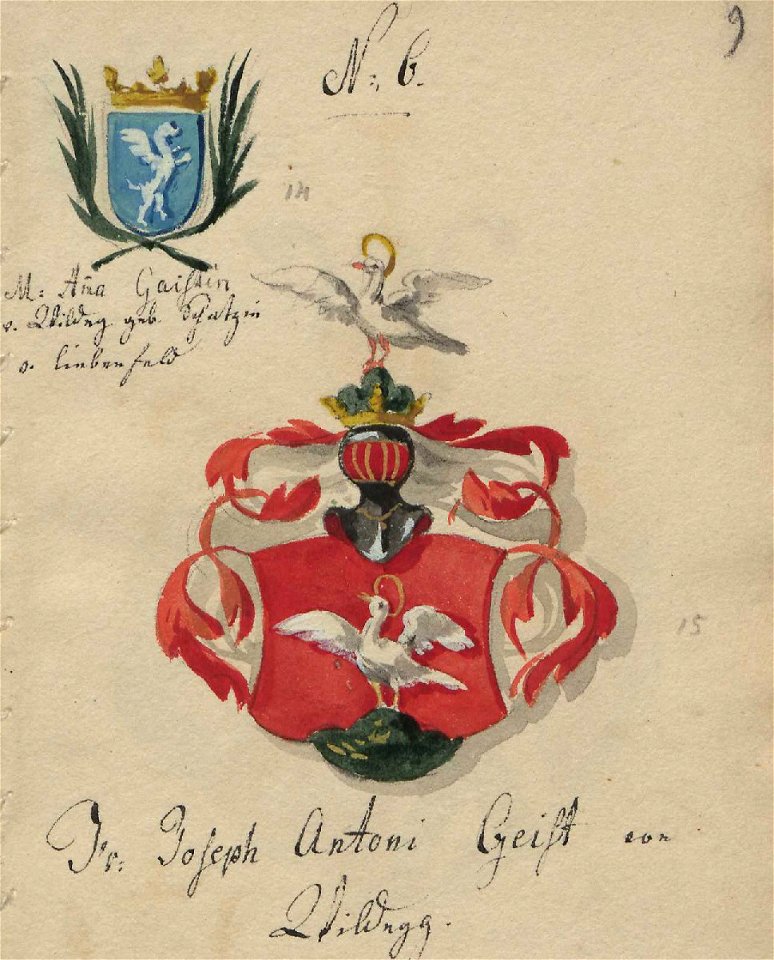 9
N: 6.
14
M: Aña Gaistin
v. Wildeg geb Schatzin
v. liebenfeld
15
Fr: Joseph Antoni Geist von
Wildegg.